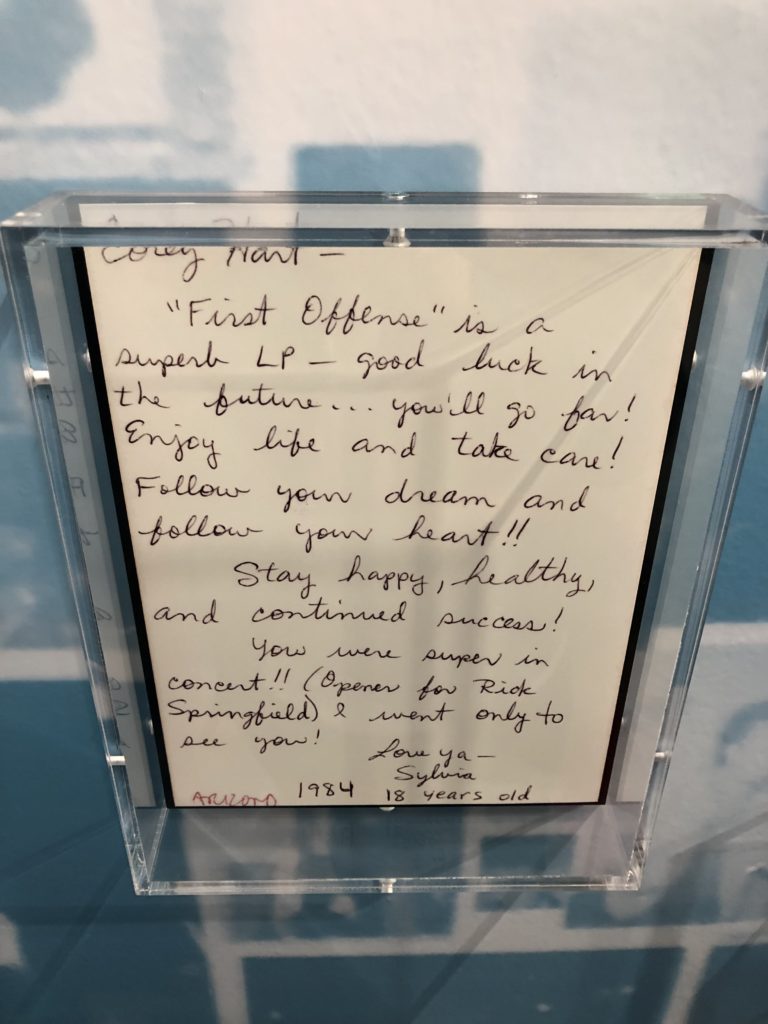 Corey Hart –
"First Offense" is a
superb LP – good luck in
the future... you'll go far!
Enjoy life and take care!
Follow your dream and
follow your heart!!
Stay happy, healthy,
and continued success!
You were super in
concert!! (Opener for Rick
Springfield) I went only to
see you!
Love ya –
Sylvia
1984 18 years old